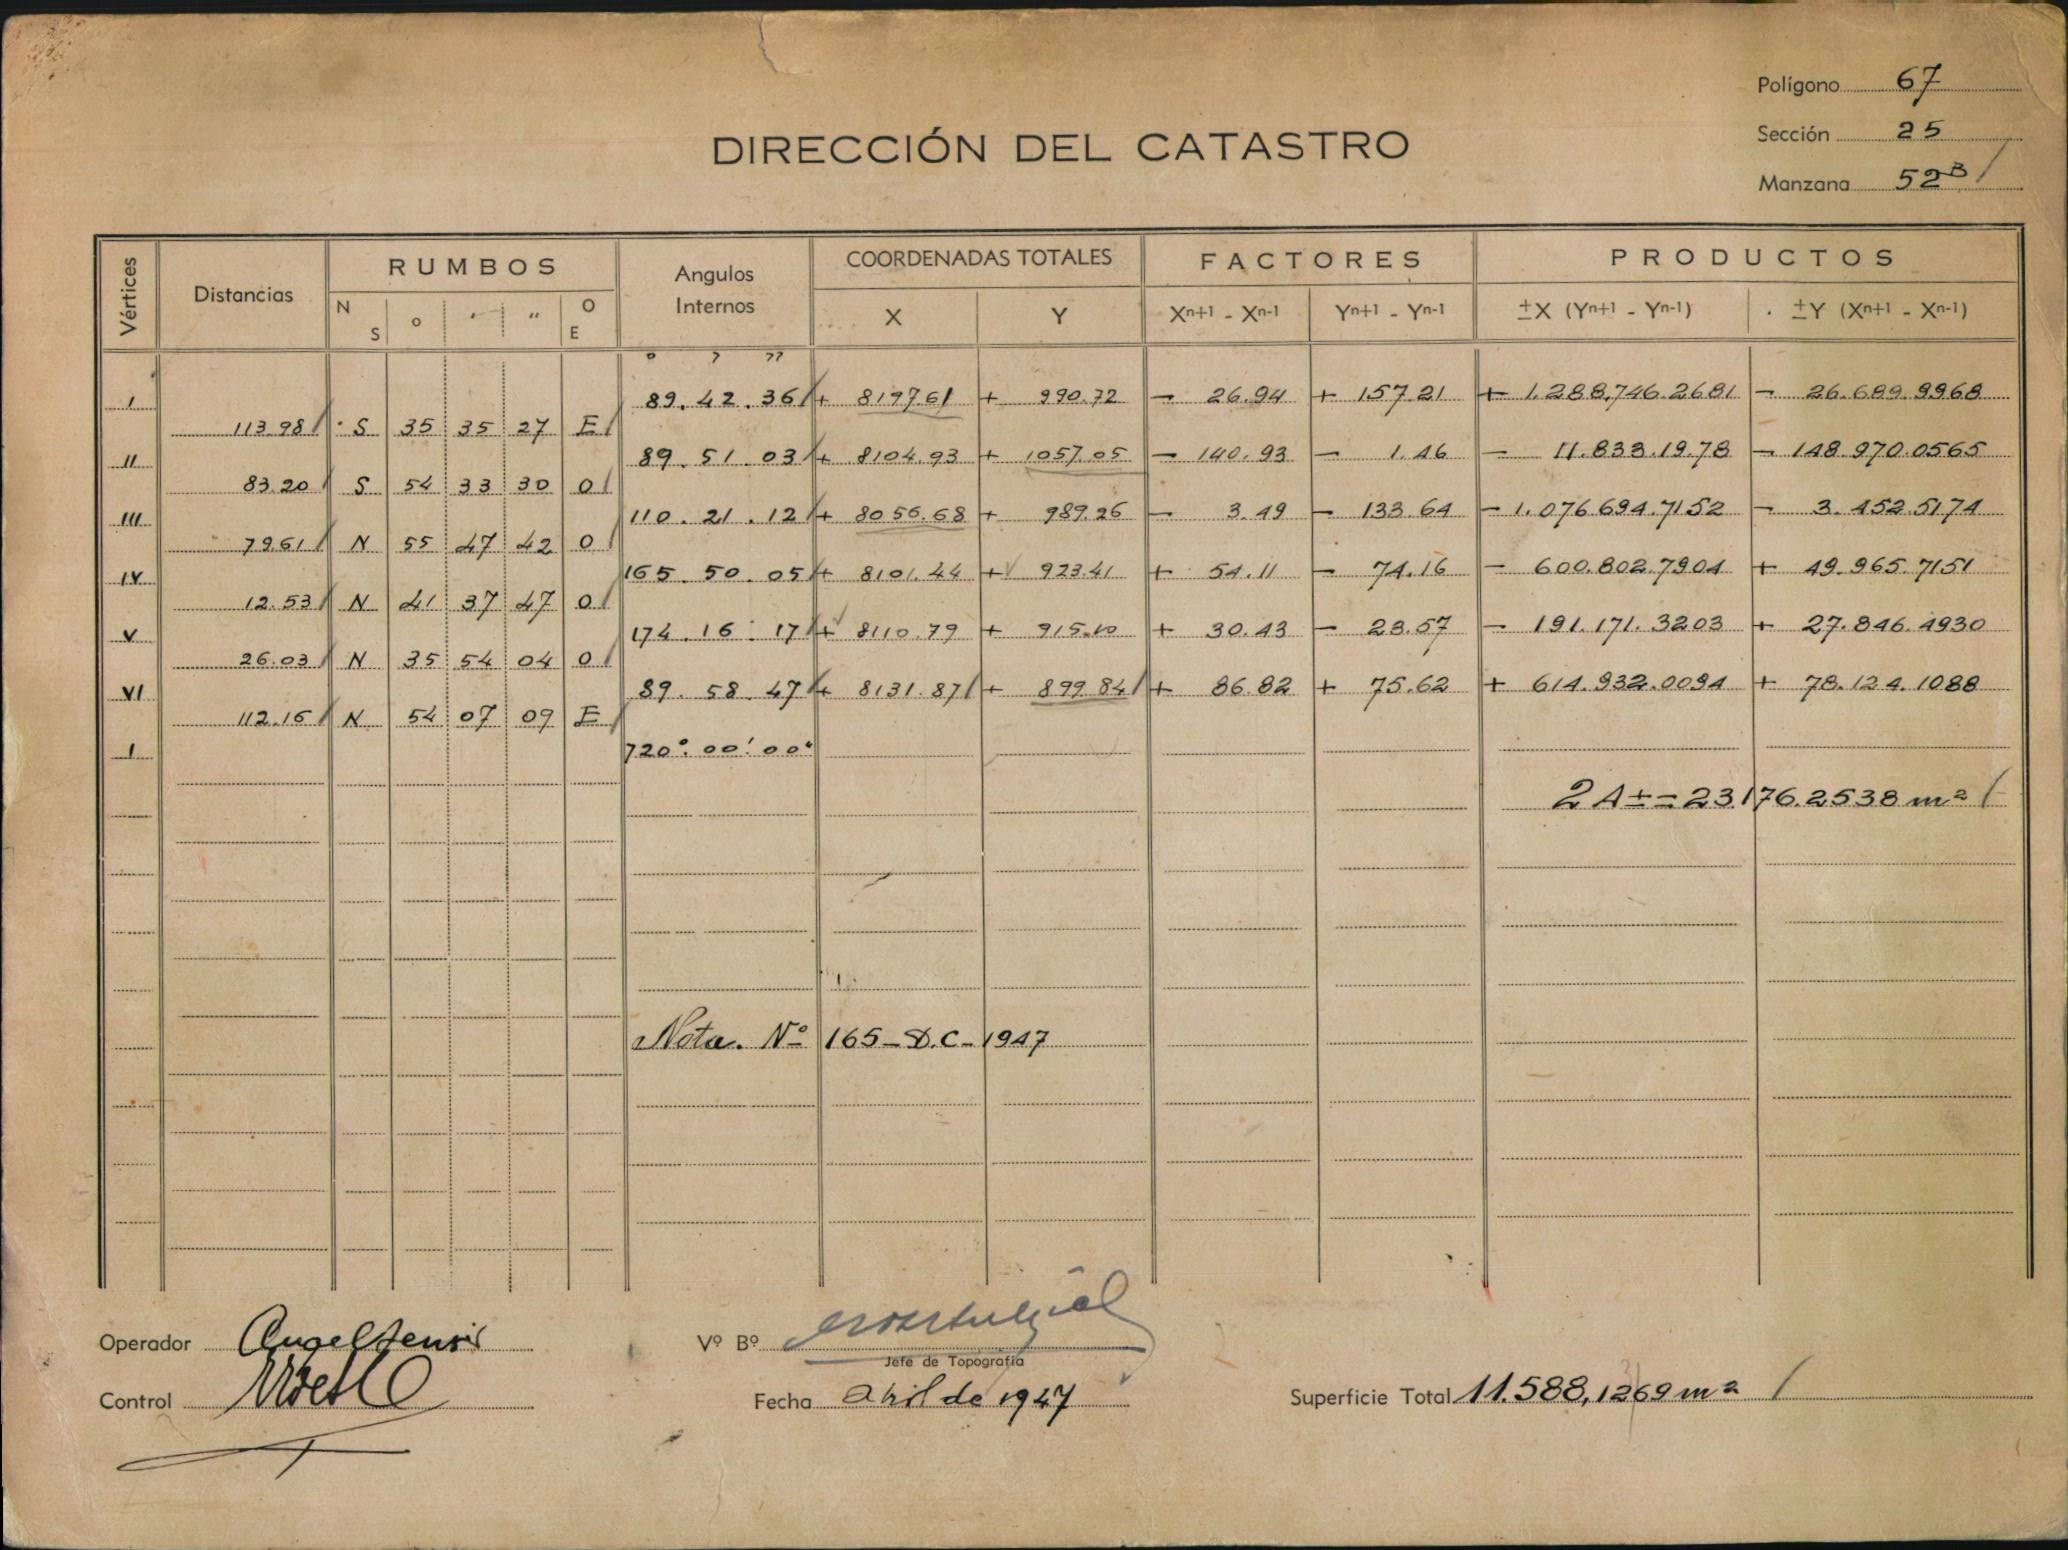 Polígono 67
Sección 25
Manzana 52B
DIRECCIÓN DEL CATASTRO
Vértices Distancias RUMBOS Angulos Internos COORDENADAS TOTALES FACTORES PRODUCTOS
N S o ' " O E X Y Xn+1 - Xn-1 Yn+1 - Yn-1 ±X (Yn+1 - Yn-1) ±Y (Xn+1 - Xn-1)
o ' "
I 89.42.36 + 8197.61 + 990.72 - 26.94 + 157.21 + 1.288.746.2681 - 26.689.9968
113.98 S 35 35 27 E
II 89.51.03 + 8104.93 + 1057.05 - 140.93 - 1.46 - 11.833.19.78 - 148.970.0565
83.20 S 54 33 30 O
III 110.21.12 + 8056.68 + 989.26 - 3.49 - 133.64 - 1.076.694.7152 - 3.452.5174
79.61 N 55 47 42 O
IV 165.50.05 + 8101.44 + 923.41 + 54.11 - 74.16 - 600.802.7904 + 49.965.7151
12.53 N 41 37 47 O
V 174.16.17 + 8110.79 + 915.10 + 30.43 - 23.57 - 191.171.3203 + 27.846.4930
26.03 N 35 54 04 O
VI 89.58.47 + 8131.87 + 899.84 + 86.82 + 75.62 + 614.932.0094 + 78.124.1088
112.15 N 54 07 09 E
I 720°.00'.00"
2 A ± = 23.176.2538 m²
Nota. Nº 165-D.C-1947
Operador
Vº Bº
Jefe de Topografía
Control
Fecha Abril de 1947
Superficie Total 11.588,1269 m²